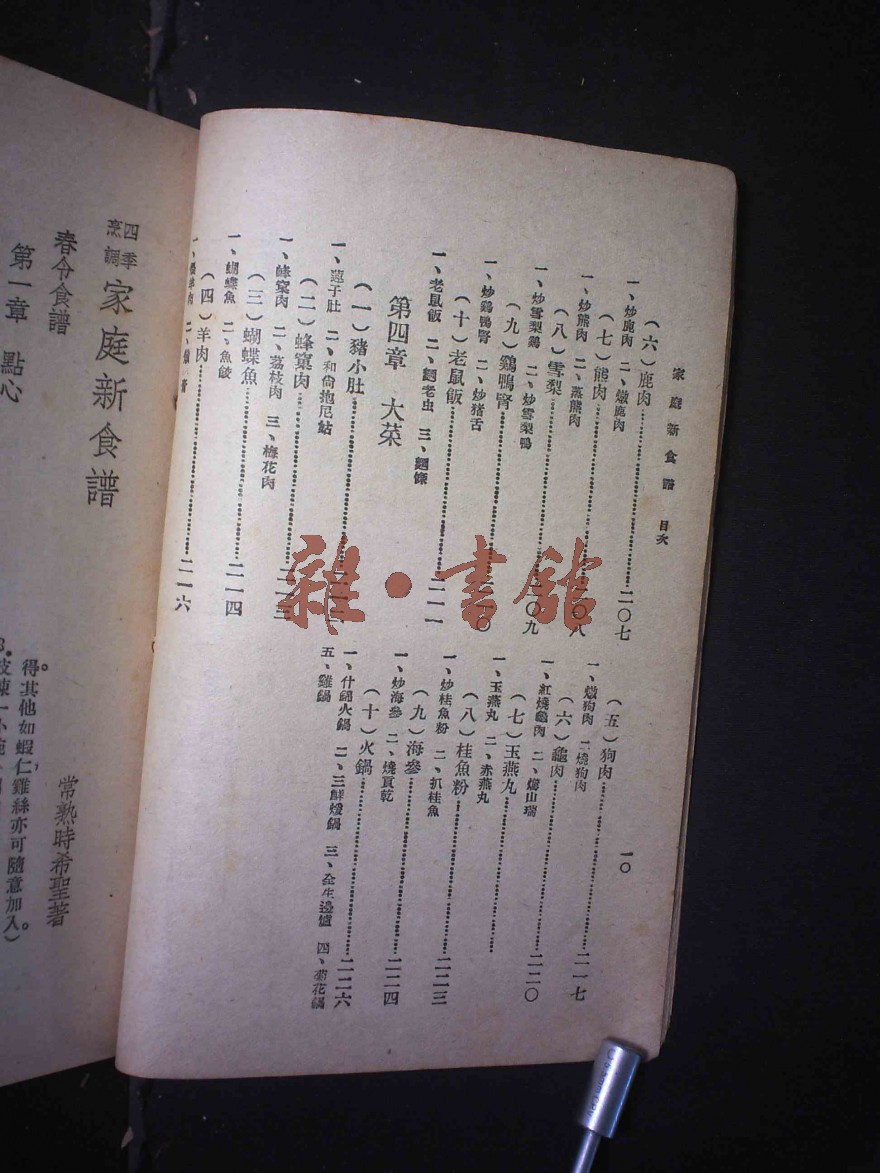 家庭新食譜 目次
(六)鹿肉…二〇七
一、炒鹿肉 二、燉鹿肉
(七)熊肉…二〇八
一、炒熊肉 二、蒸熊肉
(八)雪梨…二〇九
一、炒雪梨鷄 二、炒雪梨鴨
(九)鷄鴨腎…二一〇
一、炒鷄鴨腎 二、炒猪舌
(十)老鼠飯…二一一
一、老鼠飯 二、麵老虫 三、麵條
第四章 大菜
(一)豬小肚…二一二
一、蓮子肚 二、和尙抱尼姑
(二)蜂窠肉…二一三
一、蜂窠肉 二、荔枝肉 三、梅花肉
(三)蝴蝶魚…二一四
一、蝴蝶魚 二、魚餃
(四)羊肉…二一六
一〇
(五)狗肉…二一七
一、燉狗肉 二、燒狗肉
(六)龜肉…二二〇
一、紅燒龜肉 二、燉山瑞
(七)玉燕丸…
一、玉燕丸 二、赤燕丸
(八)桂魚粉…二二三
一、炒桂魚粉 二、扒桂魚
(九)海參…二二四
一、炒海參 二、燒貢乾
(十)火鍋…二二六
一、什錦火鍋 二、三鮮煖鍋 三、全生邊爐 四、菊花鍋
五、雞鍋
四季烹調 家庭新食譜
常熟時希聖著
春令食譜
第一章 點心
得其他如蝦仁雞絲亦可隨意加入)。
雜·書館